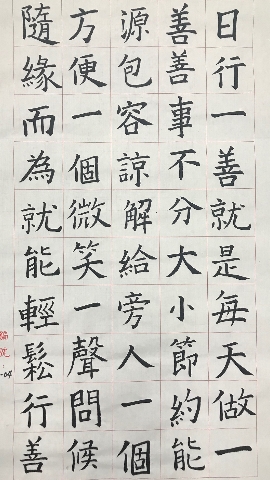 日行一善就是每天做一
善善事不分大小節約能
源包容諒解給旁人一個
方便一個微笑一聲問候
隨緣而為就能輕鬆行善